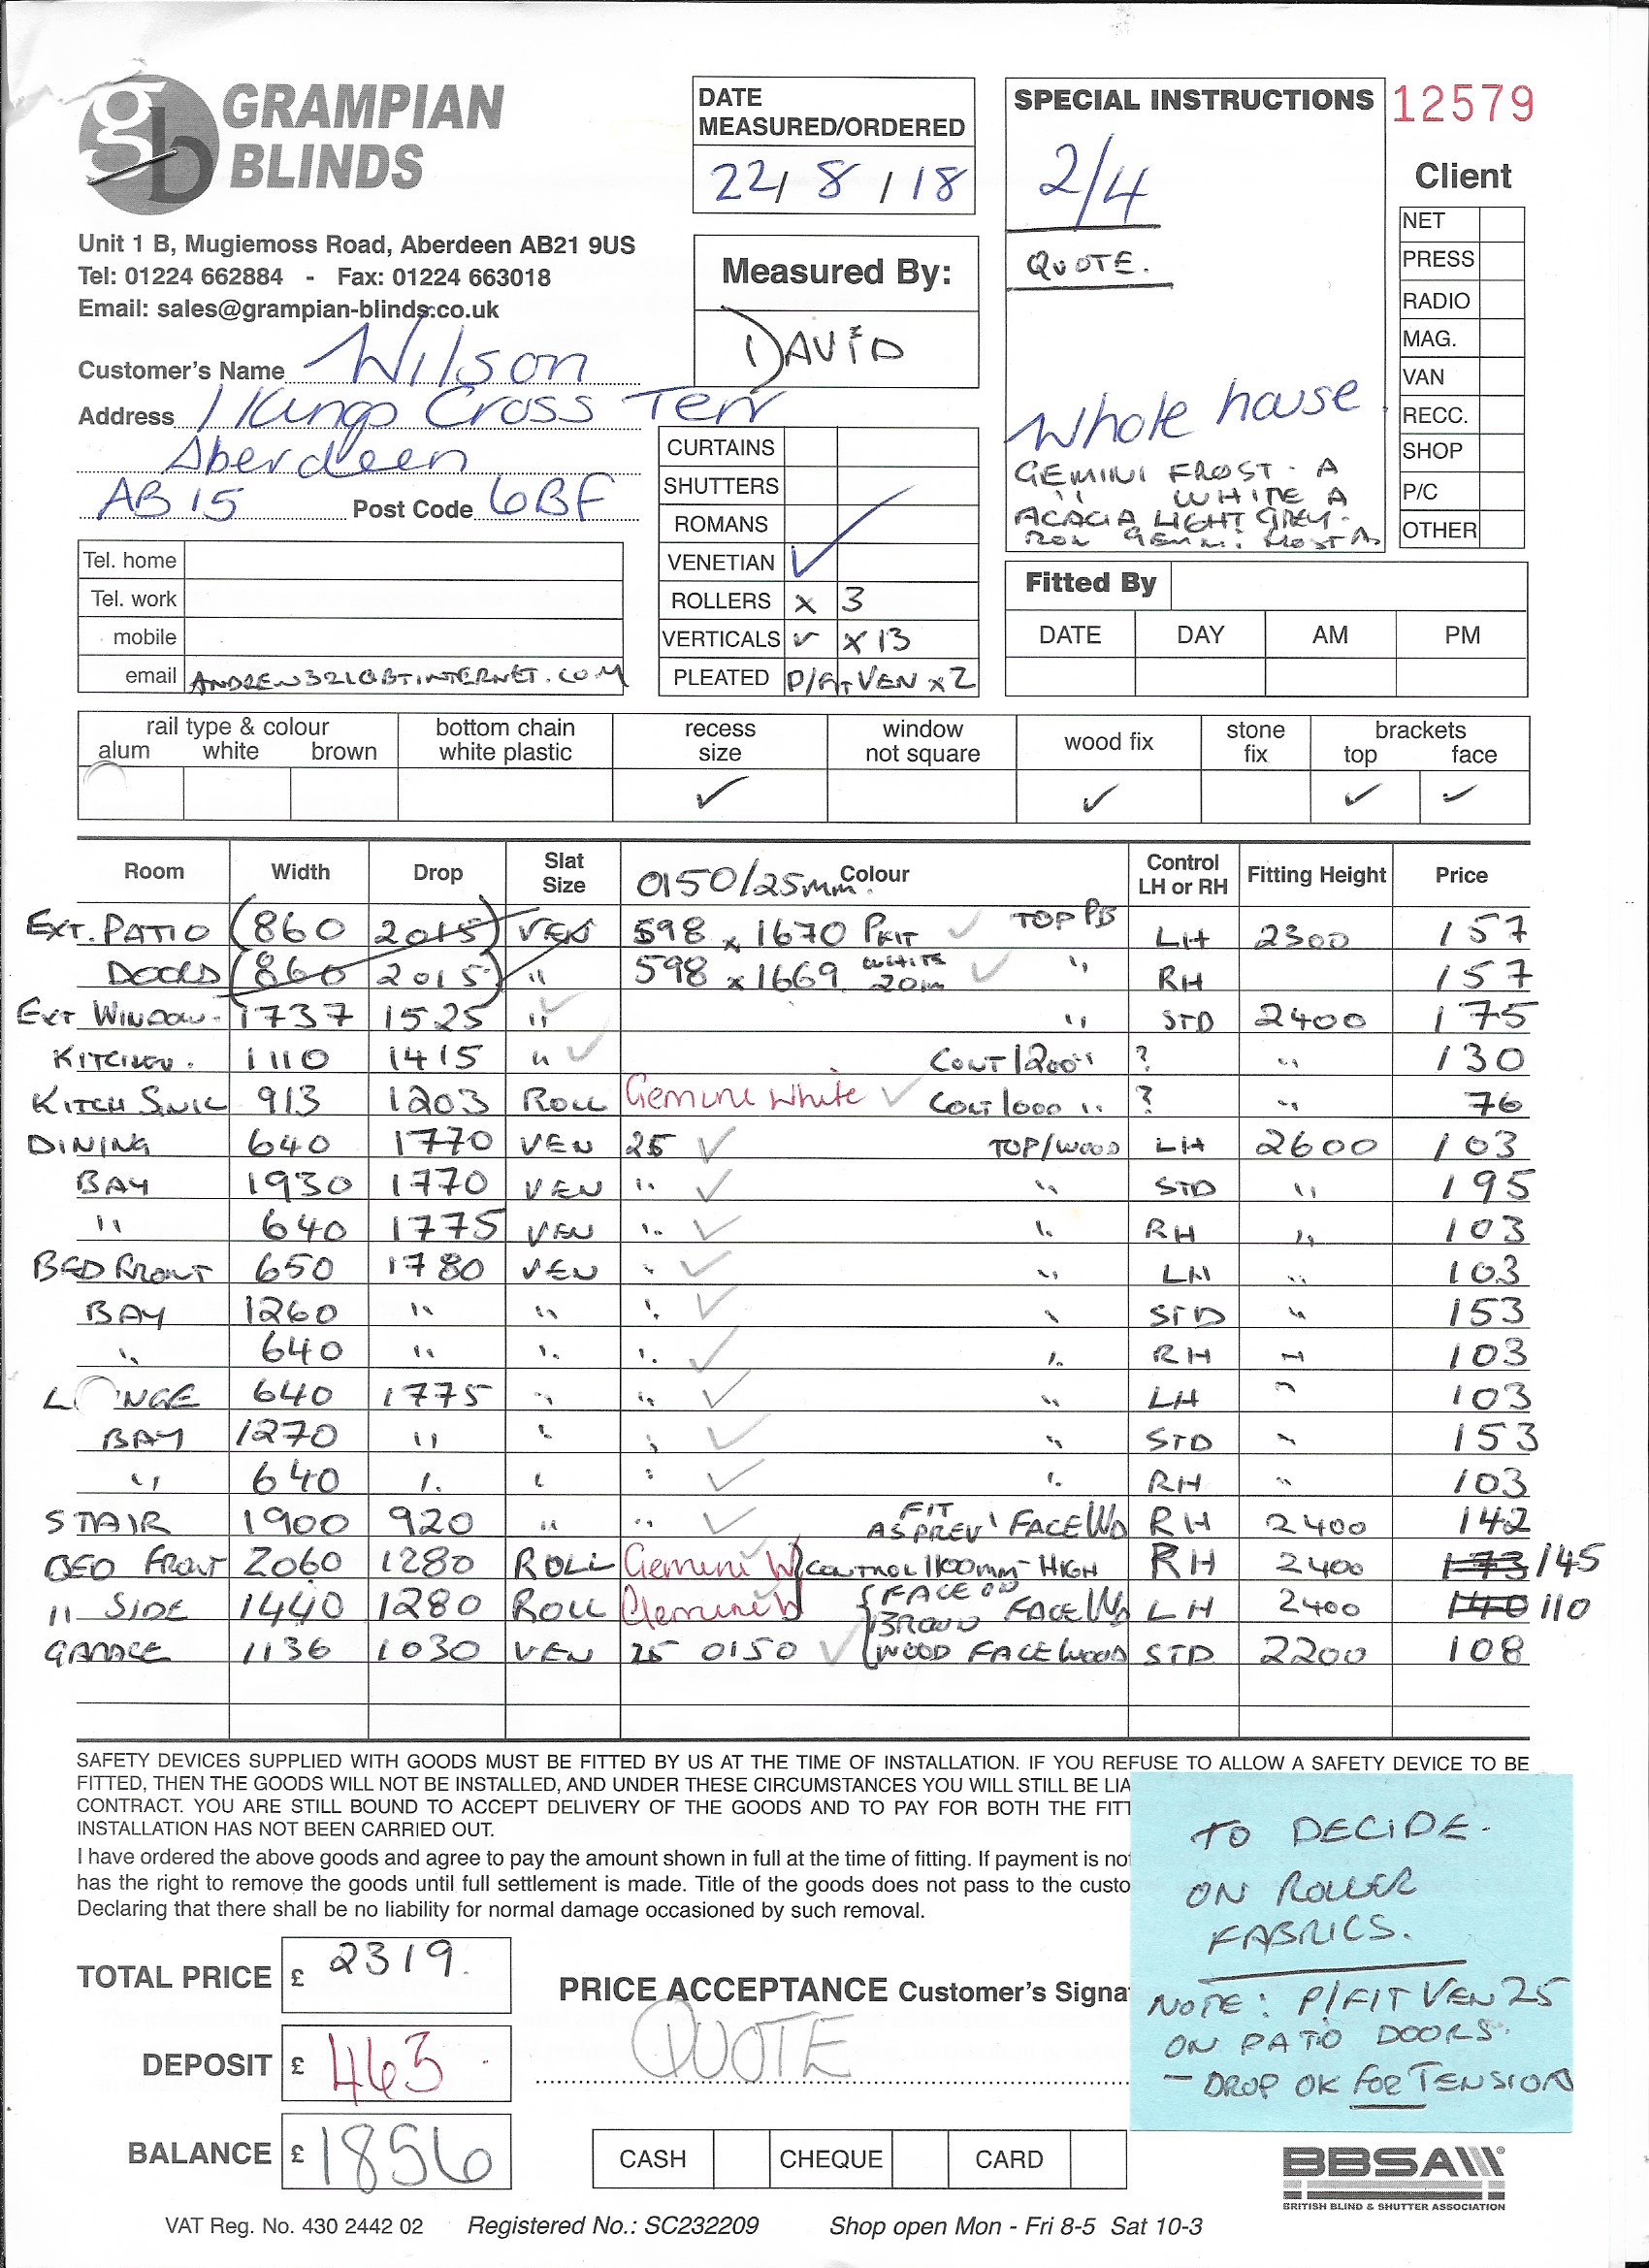 GRAMPIAN
BLINDS
Unit 1 B, Mugiemoss Road, Aberdeen AB21 9US
Tel: 01224 662884 - Fax: 01224 663018
Email: sales@grampian-blinds.co.uk
DATE
MEASURED/ORDERED
22/8/18
Measured By:
DAViD
SPECIAL INSTRUCTIONS
2/4
QUOTE.
Whole house
GEMINI FROST. A
" WHITE A
ACACIA LIGHT GREY.
12579
Client
NET
PRESS
RADIO
MAG.
VAN
RECC.
SHOP
P/C
OTHER
Customer's Name Wilson
Address 1 Kings Cross Terr
Aberdeen
AB15 Post Code 6BF
Tel. home
Tel. work
mobile
email ANDREW321@BTINTERNET.COM
CURTAINS
SHUTTERS
ROMANS
VENETIAN ✓
ROLLERS x 3
VERTICALS ✓ x 13
PLEATED P/Fit VEN x 2
Fitted By
DATE DAY AM PM
rail type & colour
alum white brown
bottom chain
white plastic
recess
size ✓
window
not square
wood fix ✓
stone
fix
brackets
top ✓ face ✓
Room Width Drop Slat Size 0150/25mm. Colour Control LH or RH Fitting Height Price
EXT. PATIO (860 2015) VEN 598 x 1670 PFIT ✓ TOP PB LH 2300 157
DOORS (860 2015) " 598 x 1669 WHITE 20m ✓ " RH 157
EXT WINDOW. 1737 1525 " ✓ " STD 2400 175
KITCHEN. 1110 1415 " ✓ CONT 1200 " ? " 130
KITCH SNK 913 1203 ROLL Gemini White ✓ CONT 1000 " ? " 76
DINING 640 1770 VEN 25 ✓ TOP/WOOD LH 2600 103
BAY 1930 1770 VEN " ✓ " STD " 195
" 640 1775 VEN " ✓ " RH " 103
BED FRONT 650 1780 VEN " ✓ " LH " 103
BAY 1260 " " " ✓ " STD " 153
" 640 " " " ✓ " RH " 103
LOUNGE 640 1775 " " ✓ " LH " 103
BAY 1270 " " " ✓ " STD " 153
" 640 " " " ✓ " RH " 103
STAIR 1900 920 " " ✓ FIT AS PREV' FACE WD RH 2400 142
BED FRONT 2060 1280 ROLL Gemini W CONTROL 1100mm HIGH RH 2400 173 145
" SIDE 1440 1280 ROLL Gemini W FACE ON BROWN WOOD FACE WD LH 2400 140 110
GARAGE 1136 1030 VEN 25 0150 ✓ FACE WOOD STD 2200 108
SAFETY DEVICES SUPPLIED WITH GOODS MUST BE FITTED BY US AT THE TIME OF INSTALLATION. IF YOU REFUSE TO ALLOW A SAFETY DEVICE TO BE
FITTED, THEN THE GOODS WILL NOT BE INSTALLED, AND UNDER THESE CIRCUMSTANCES YOU WILL STILL BE LIA
CONTRACT. YOU ARE STILL BOUND TO ACCEPT DELIVERY OF THE GOODS AND TO PAY FOR BOTH THE FIT
INSTALLATION HAS NOT BEEN CARRIED OUT.
I have ordered the above goods and agree to pay the amount shown in full at the time of fitting. If payment is no
has the right to remove the goods until full settlement is made. Title of the goods does not pass to the custo
Declaring that there shall be no liability for normal damage occasioned by such removal.
TO DECIDE.
ON ROLLER
FABRICS.
NOTE: P/FIT VEN 25
ON PATO DOORS.
- DROP OK FOR TENSION
TOTAL PRICE £ 2319.
DEPOSIT £ 463.
BALANCE £ 1856
PRICE ACCEPTANCE Customer's Signa
QUOTE
CASH CHEQUE CARD
BBSA
BRITISH BLIND & SHUTTER ASSOCIATION
VAT Reg. No. 430 2442 02 Registered No.: SC232209 Shop open Mon - Fri 8-5 Sat 10-3